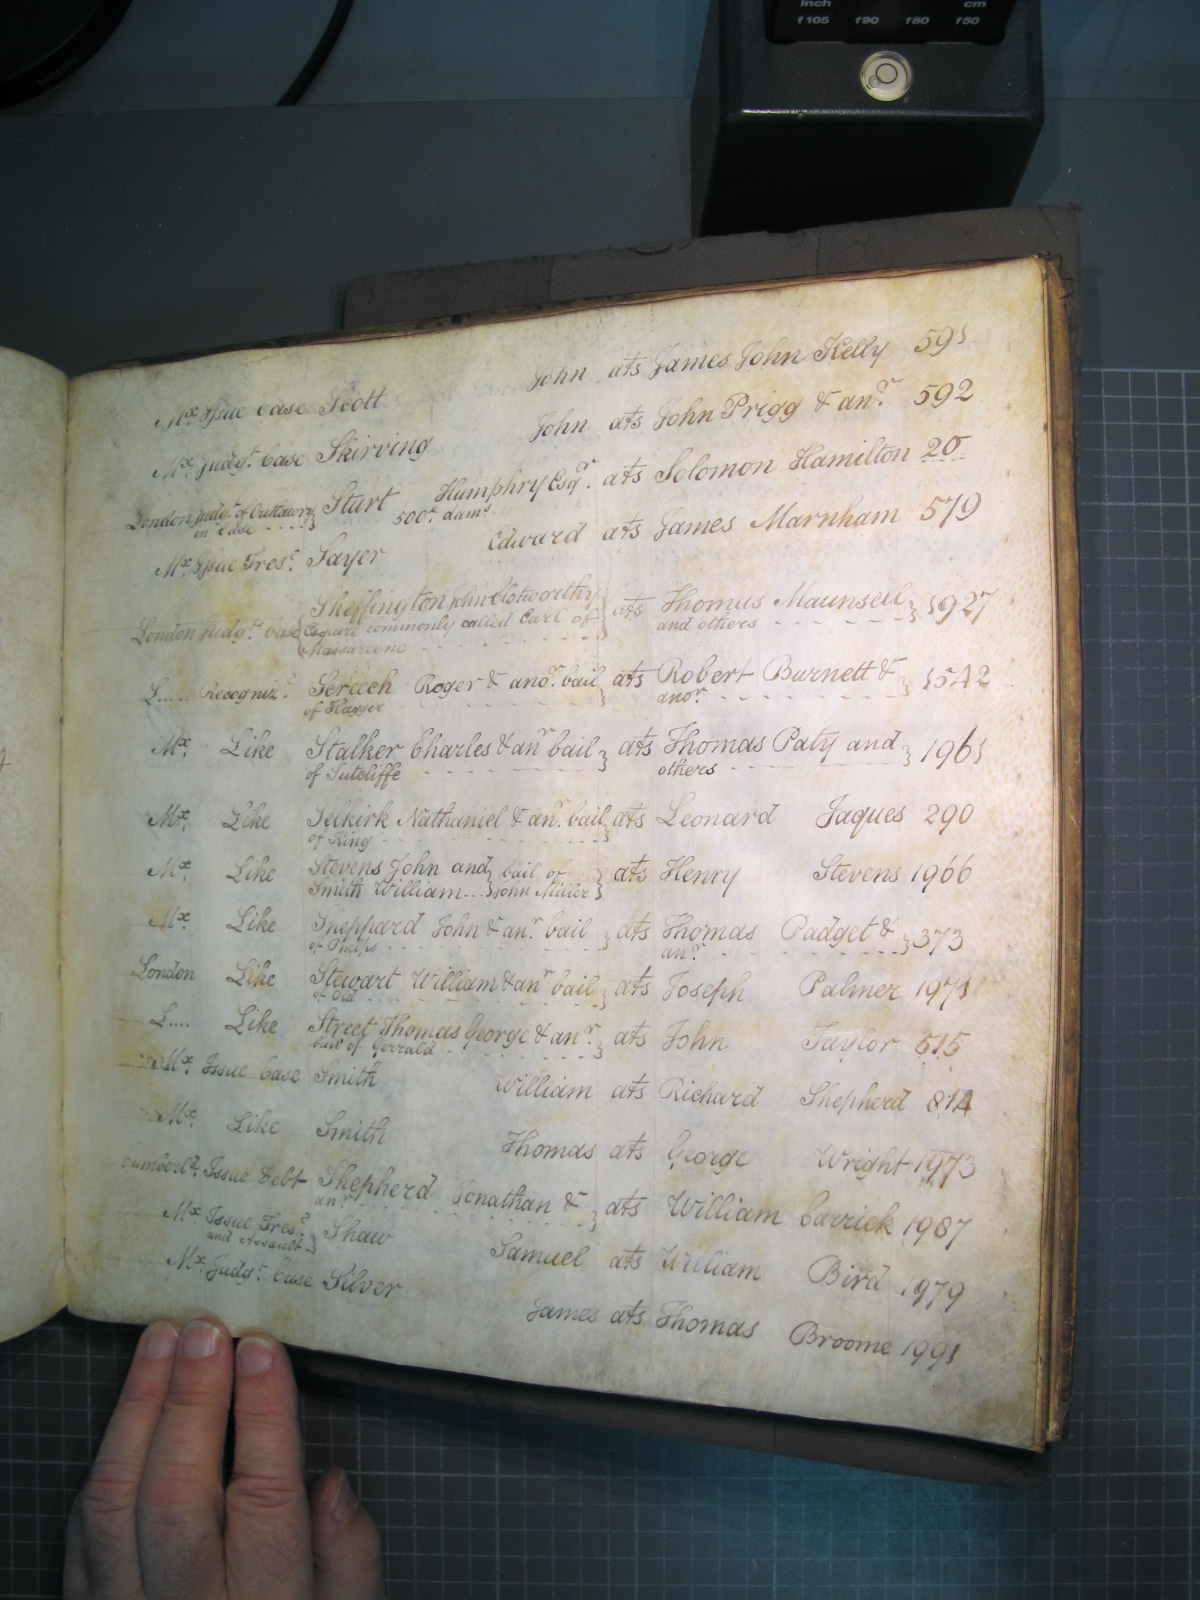 inch cm
f105 f90 f80 f50
PHILIPS
Mx. Issue Case Scott John ats James John Kelly 591
Mx. Judgt. Case Skirving John ats John Prigg & anr. 592
London Judgt. of Outlawry in Case Sturt Humphry Esqr. ats Solomon Hamilton 20
500£ dams.
Mx. Issue Tress. Sayer Edward ats James Marnham 579
London Judgt. Case Skeffington John Clotworthy ats Thomas Maunsell 1927
Esquire commonly called Earl of and others
Massareene
L.... Recogniz. Roger & anor. bail ats Robert Burnett & 1542
of anor.
Mx. Like Stalker Charles & anr bail ats Thomas Paty and 1961
of Sutcliffe others
Mx. Like Selkirk Nathaniel & anr. bail ats Leonard Jaques 290
of King
Mx. Like Stevens John and bail of ats Henry Stevens 1966
Smith William John Miller
Mx. Like Sheppard John & anr. bail ats Thomas Padget & 373
of Phelps anr.
London Like Stewart William & anr bail ats Joseph Palmer 1971
of Ord
L.... Like Street Thomas George & anr. ats John Taylor 515
bail of Gerrald
Mx. Issue Case Smith William ats Richard Shepherd 814
Mx. Like Smith Thomas ats George Wright 1973
Cumberld. Issue Debt Shepherd Jonathan & ats William Carrick 1987
anr.
Mx. Issue Tress. Shaw Samuel ats William Bird 1979
and Assault
Mx. Judgt. Case Silver James ats Thomas Broome 1991